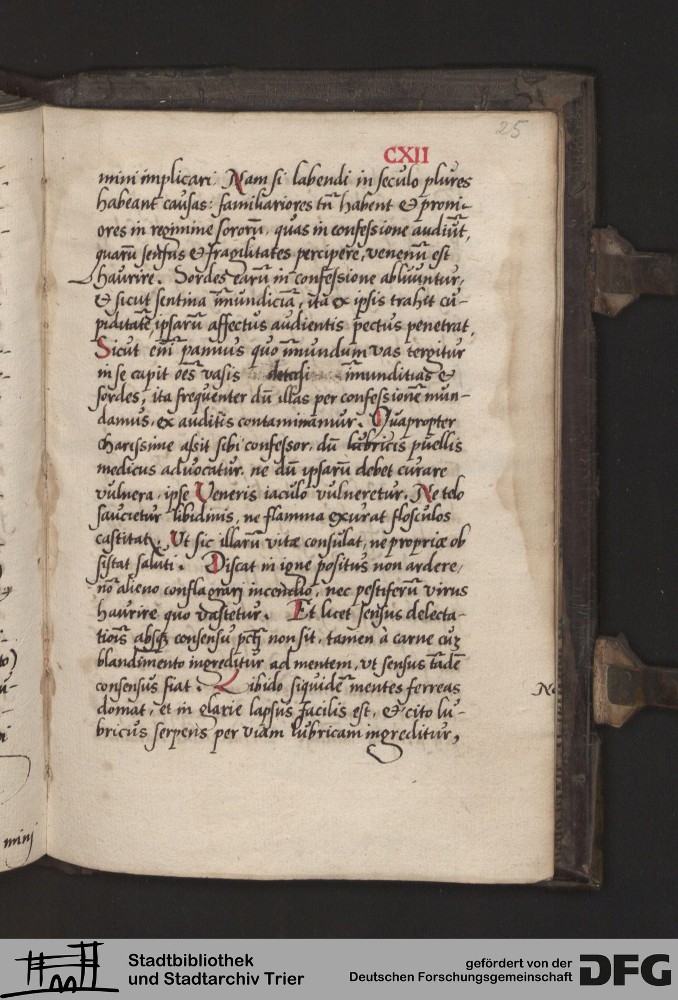 25
CXII
mini implicari. Nam si labendi in seculo plures
habeant causas: familiariores tñ habent & proni-
ores in regimine sororũ, quas in confessione audiũt,
quarũ sensus & fragilitates percipere, venenũ est
haurire. Sordes earũ in confessione abluuntur,
& sicut sentina ĩmundiciã, ita ex ipsis trahit cu-
piditatẽ, ipsarũ affectus audientis pectus penetrat,
Sicut eñi pannus quo ĩmundum vas tergitur
in se capit oẽs vasis ĩmunditias &
sordes, ita frequenter dũ illas per confessionẽ mun-
damus, ex auditis contaminamur. Quapropter
charissime assit sibi confessor, dũ lubricis puellis
medicus aduocatur, ne dũ ipsarũ debet curare
vulnera, ipse Veneris iaculo vulneretur. Ne telo
saucietur libidinis, ne flamma exurat flosculos
castitat. Ut sic illarũ vitæ consulat, ne propriæ ob
sistat saluti. Discat in igne positus non ardere,
nõ alieno conflagrari incendio, nec pestiferũ virus
haurire quo vastetur. Et licet sensus delecta-
tiõis absqꝫ consensu pctĩ non sit, tamen à carne cuꝫ
blandimento ingreditur ad mentem, vt sensus tãdẽ
consensus fiat. Libido siquidẽ mentes ferreas
domat, et in glarie lapsus facilis est, & cito lu-
bricus serpens per viam lubricam ingreditur,
minj
Stadtbibliothek
und Stadtarchiv Trier
gefördert von der
Deutschen Forschungsgemeinschaft
DFG